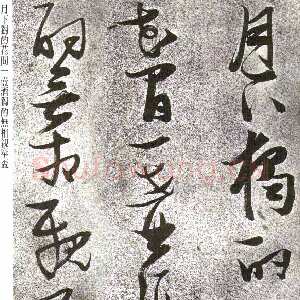 月下獨酌
花間一壺酒
酌無相親
月下獨酌花間一壺酒獨酌無相親舉盃